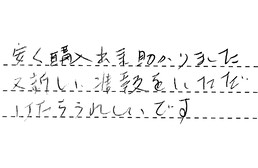 安く購入出来助かりました
又新しい情報をいただ
けたらうれしいです